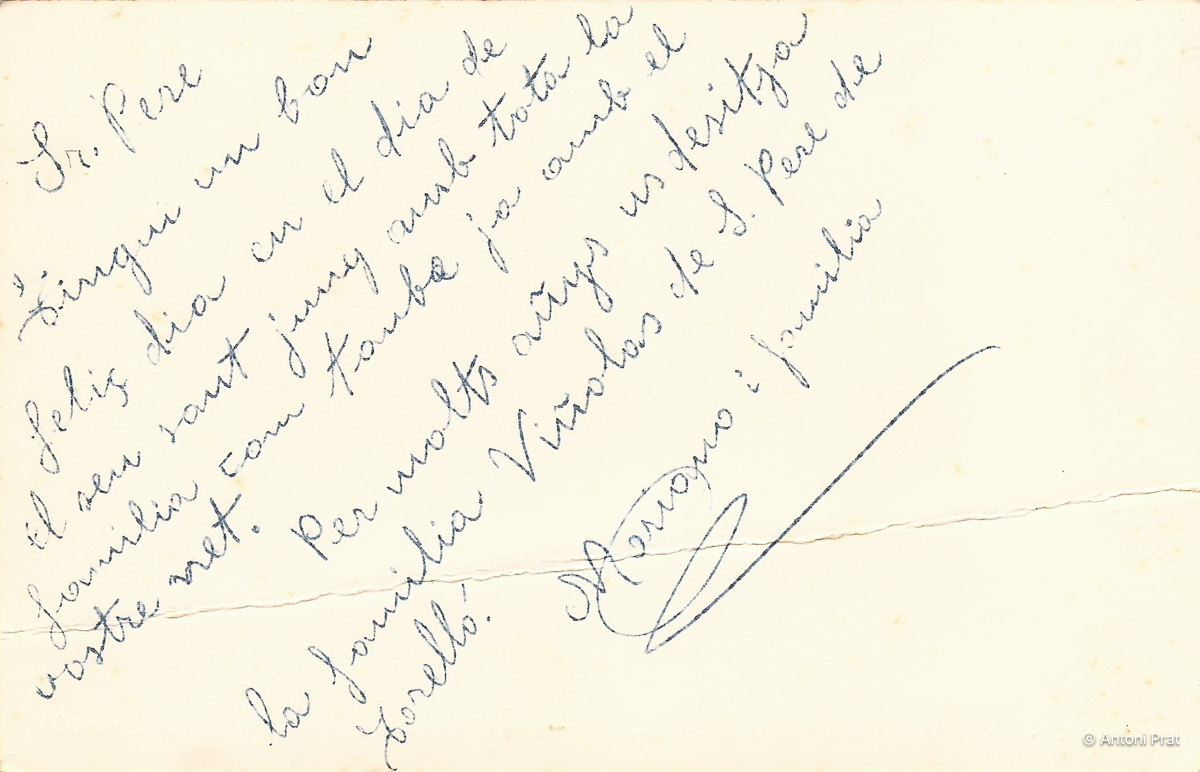 Sr. Pere
Tingui un bon
feliç dia en el dia de
el seu sant juny amb tota la
familia com tambe ja amb el
vostre net.
Per molts añys us desitja
la familia Viñolas de S. Pere de
Torelló.
Mariano i familia
© Antoni Prat